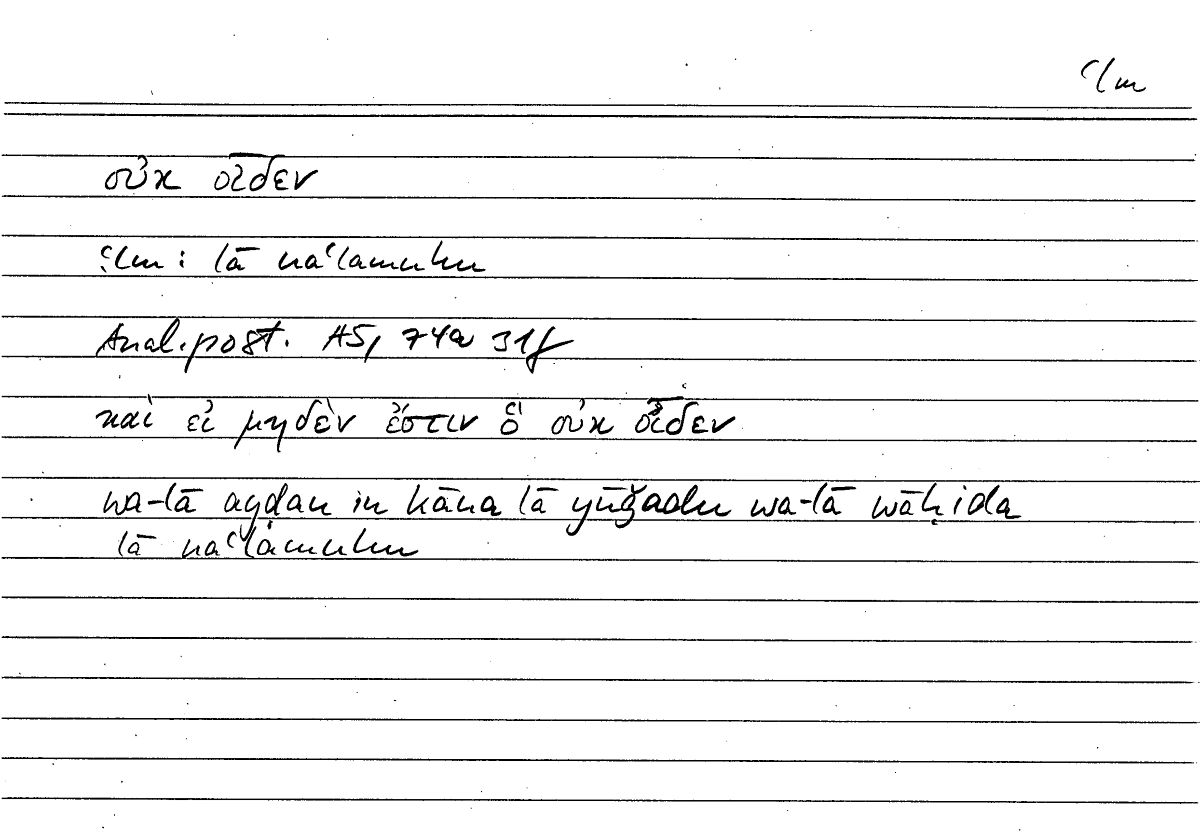 ʿlm
οὐκ οἶδεν
ʿlm : lā naʿlamuhu
Anal. post. A5, 74a 31f
καὶ εἰ μηδὲν ἔστιν ὃ οὐκ οἶδεν
wa-lā ayḍan in kāna lā yūǧadu wa-lā wāḥida
lā naʿlamuhu